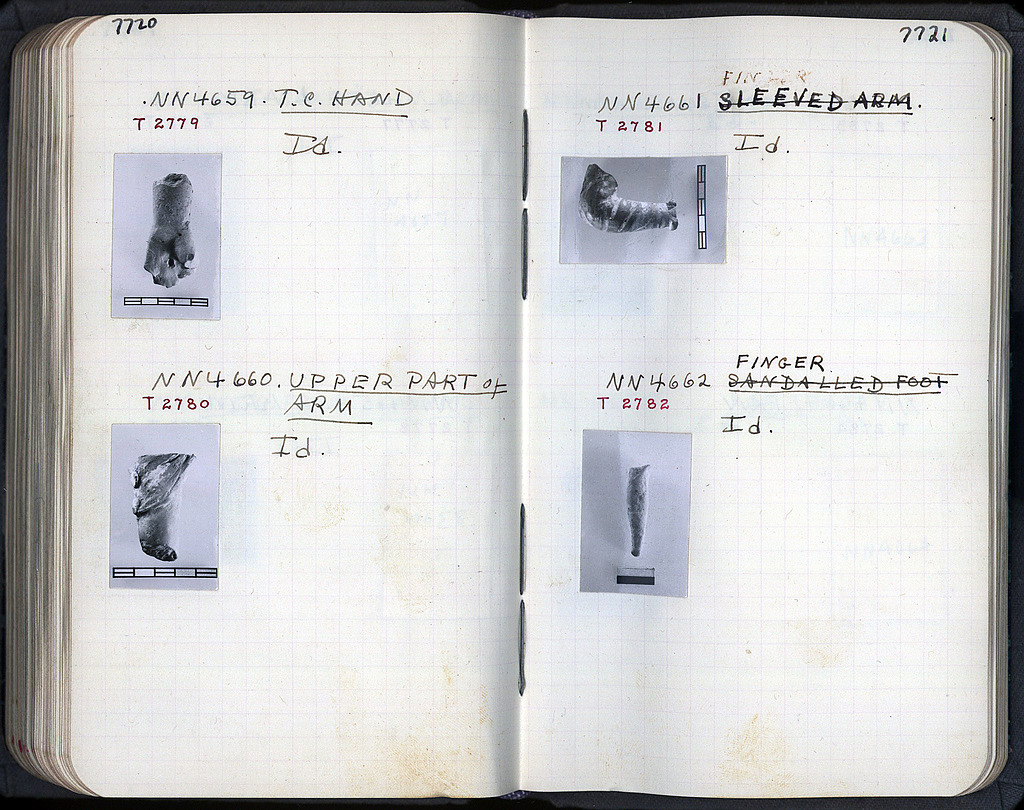 7720
.NN4659. T.C. HAND
T 2779
Id.
NN4660. UPPER PART of
T 2780
ARM
Id.
7721
FINGER
NN4661 SLEEVED ARM.
T 2781
Id.
FINGER
NN4662 SANDALLED FOOT
T 2782
Id.